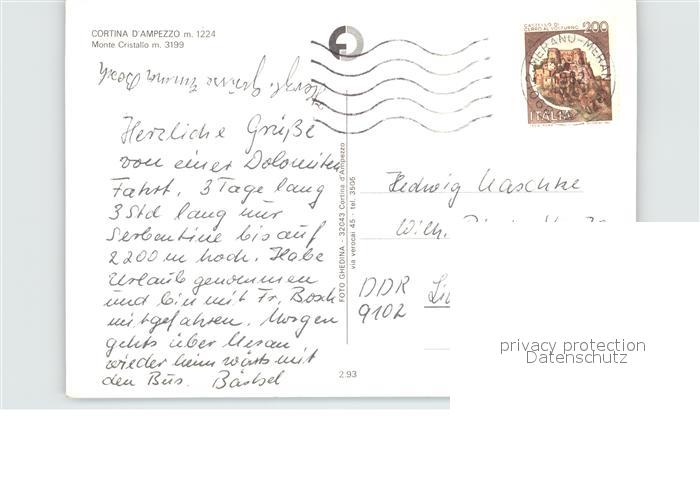 CORTINA D'AMPEZZO m. 1224
Monte Cristallo m. 3199
Herzl. Grüsse Bosch
Herzliche Grüße
von einer Dolomiten
Fahrt. 3 Tage lang
3 Std lang nur
Serbentine bis auf
2200 m hoch. Habe
Urlaub genommen
und bin mit Fr. Bosch
mitgefahren. Morgen
gehts über Meran
wieder heimwärts mit
den Bus. Bärbel
FOTO GHEDINA - 32043 Cortina d'Ampezzo
via verocai 45 - tel. 3505
2.93
CASTELLO DI
CERRO AL VOLTURNO
200
ITALIA
MERANO-MERAN
Hedwig Naschke
Wilh.
DDR
9102
privacy protection
Datenschutz